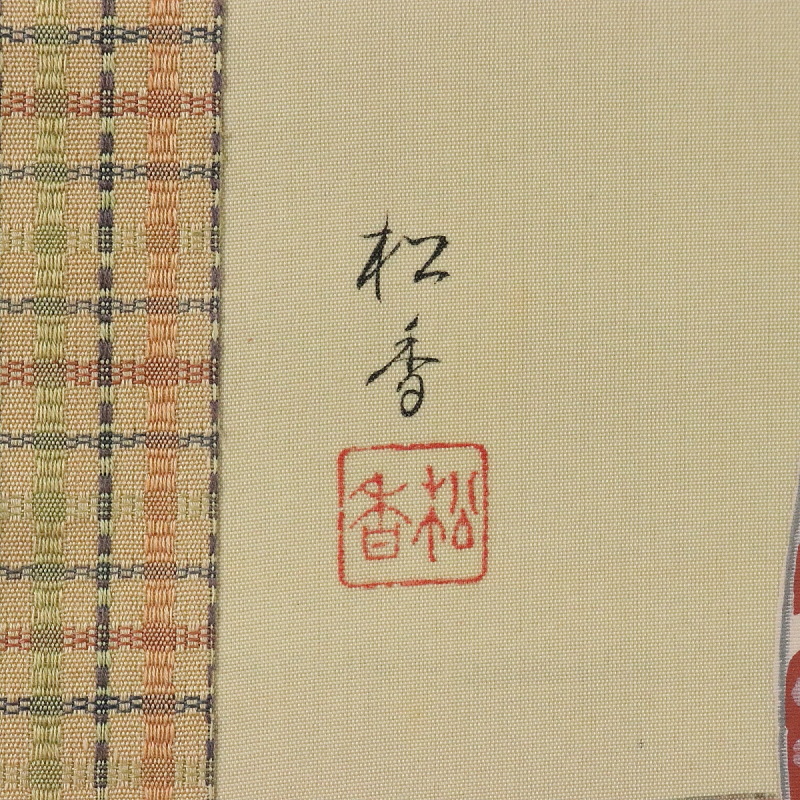 松香
松香